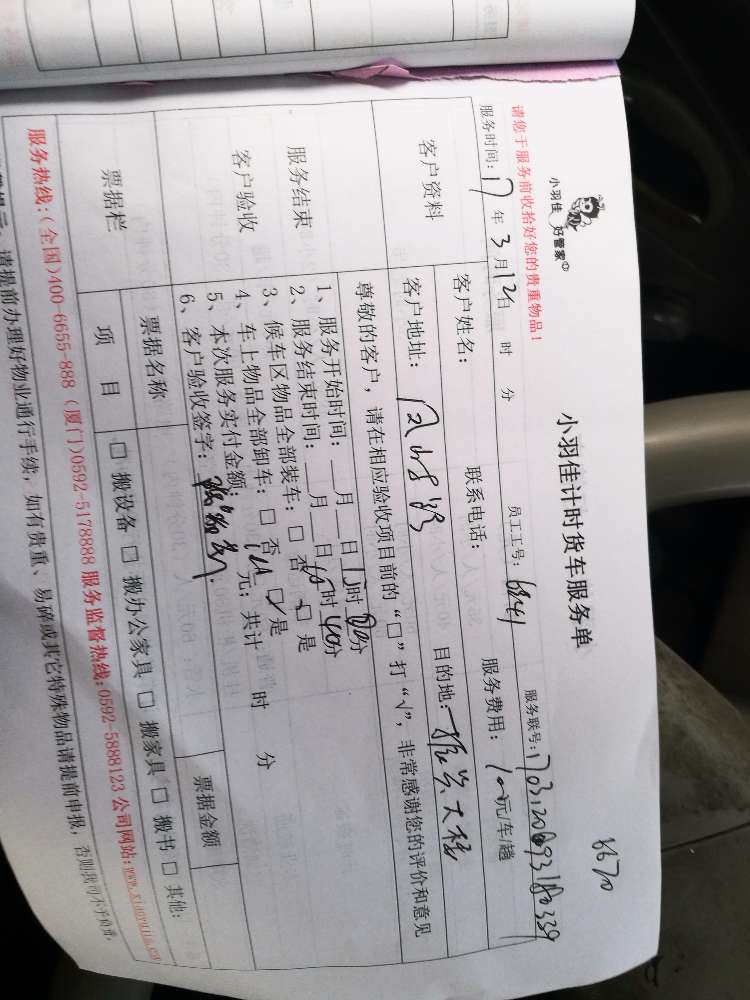 8670
小羽佳 好管家
小羽佳计时货车服务单
请您于服务前收拾好您的贵重物品！
服务时间：17年3月12日 时 分 员工工号：6841 服务联号：
客户资料
客户姓名： 联系电话： 服务费用：100元/车/趟
客户地址： 目的地：
尊敬的客户，请在相应验收项目前的“□”打“√”，非常感谢您的评价和意见
服务结束
客户验收
1、服务开始时间：__月__日15时00分
2、服务结束时间：__月__日 时40分
3、候车区物品全部装车：□ 否 □ 是
4、车上物品全部卸车：□ 否 □ 是
5、本次服务实付金额 元；共计 时 分
6、客户验收签字：
票据栏
票据名称 票据金额
项 目 □ 搬设备 □ 搬办公家具 □ 搬家具 □ 搬书 □ 其他：
服务热线：(全国)400-6655-888 (厦门)0592-5178888 服务监督热线：0592-5888123 公司网站：www.xiaoyujia.com
请提前办理好物业通行手续，如有贵重、易碎或其它特殊物品请提前申报，否则我司不予负责。